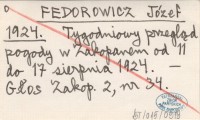 FEDOROWICZ Józef
1924. Tygodniowy przegląd
pogody w Zakopanem od 11
do 17 sierpnia 1924. —
Głos Zakop. 2, nr 34.